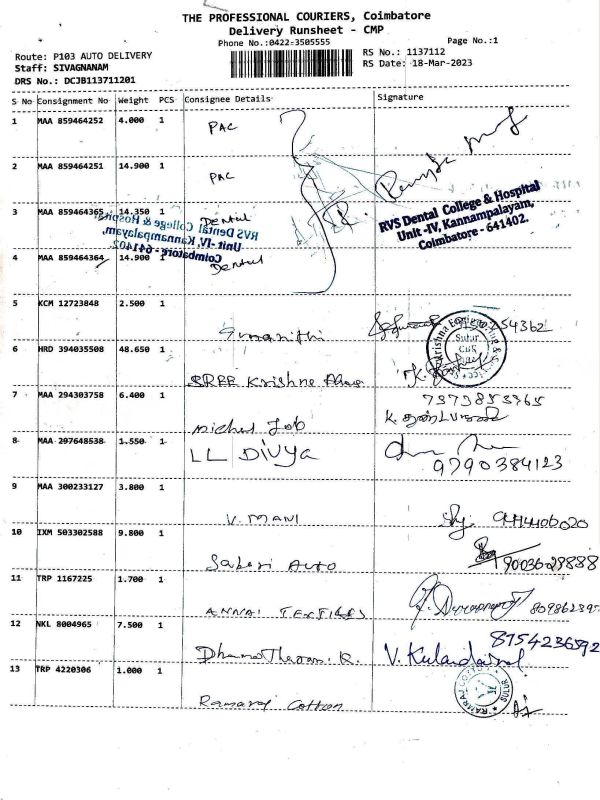 THE PROFESSIONAL COURIERS, Coimbatore
Delivery Runsheet - CMP
Phone No.:0422-3505555
Page No.:1
Route: P103 AUTO DELIVERY
RS No.: 1137112
Staff: SIVAGNANAM
RS Date: 18-Mar-2023
DRS No.: DCJB113711201
S No Consignment No Weight PCS Consignee Details Signature
1 MAA 859464252 4.000 1 PAC
2 MAA 859464251 14.900 1 PAC
3 MAA 859464365 14.350 1 Dental
RVS Dental College & Hospital
Unit -IV, Kannampalayam,
Coimbatore - 641402.
4 MAA 859464364 14.900 1 Dental
5 KCM 12723848 2.500 1
6 HRD 394035508 48.650 1 SREE Krishna
7 MAA 294303758 6.400 1 Job
7373853765
8 MAA 297648538 1.550 1 LL Divya
9790384123
9 MAA 300233127 3.800 1 V. MANI
10 IXM 503302588 9.800 1 Sabari Auto
9003629888
11 TRP 1167225 1.700 1 ANNAI TEXTILES
12 NKL 8004965 7.500 1
8754236592
V. Kulandaivel
13 TRP 4220306 1.000 1 Ramraj Cotton